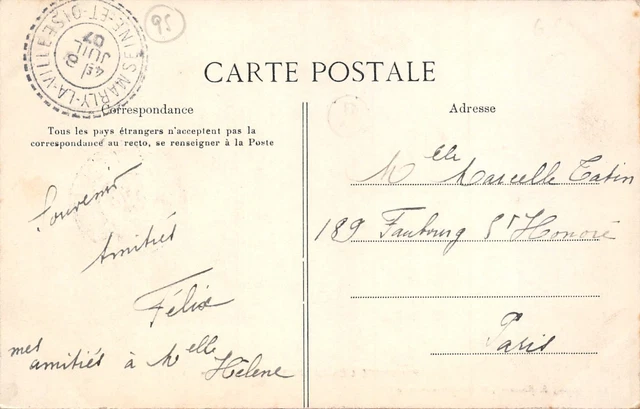 MARLY-LA-VILLE
SEINE-ET-OISE
JUIL
07
95
CARTE POSTALE
Correspondance
Tous les pays étrangers n'acceptent pas la
correspondance au recto, se renseigner à la Poste
Souvenir
Amitiés
Félix
mes
amitiés à Melle
Hélène
Adresse
Melle Marcelle Tatin
189 Faubourg St Honoré
Paris